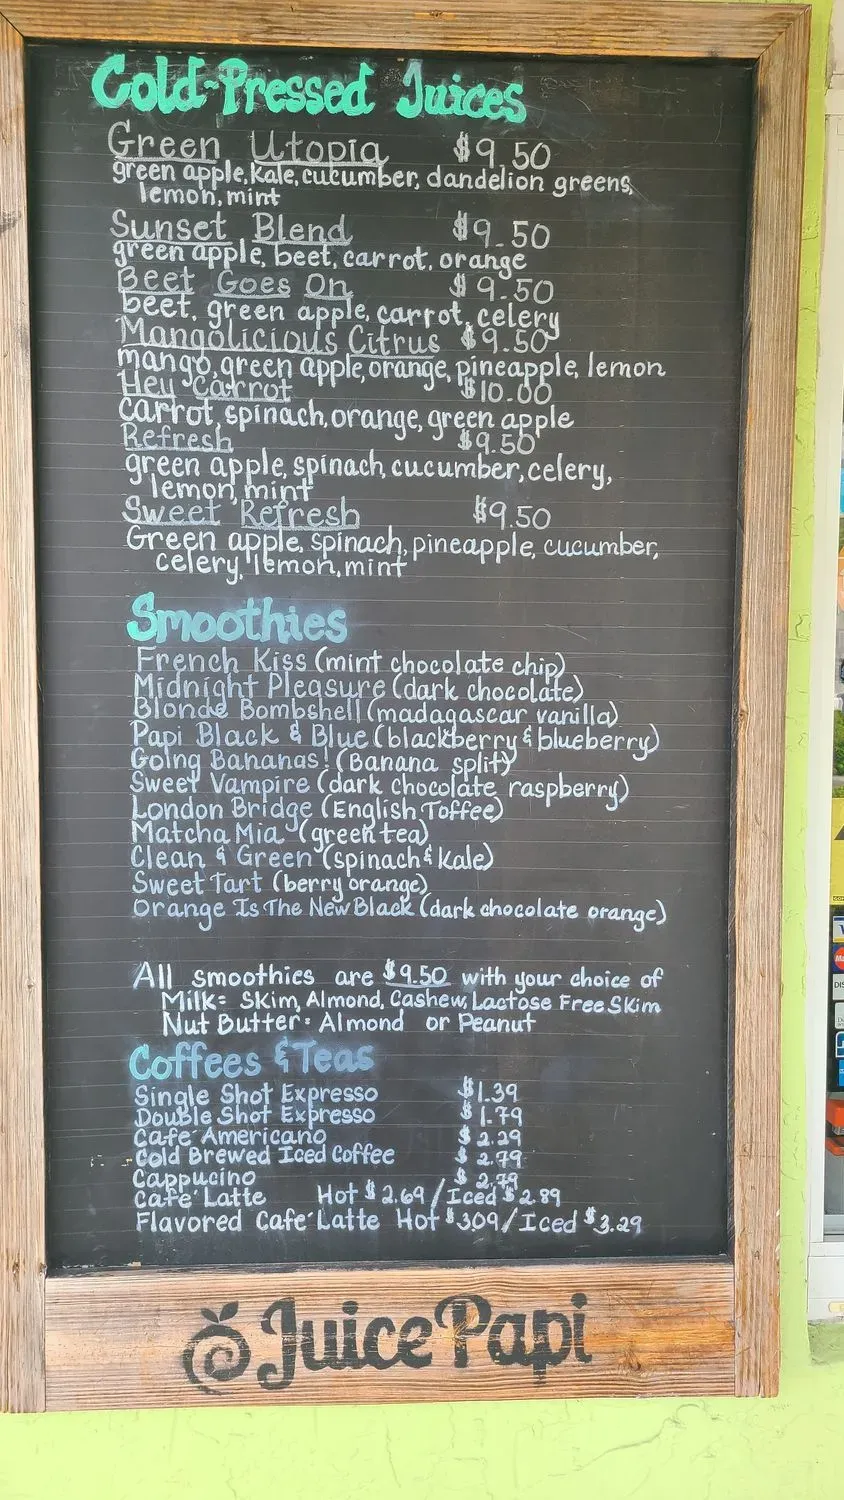 Cold-Pressed Juices
Green Utopia $9.50
green apple, kale, cucumber, dandelion greens,
lemon, mint
Sunset Blend $9.50
green apple, beet, carrot, orange
Beet Goes On $9.50
beet, green apple, carrot, celery
Mangolicious Citrus $9.50
mango, green apple, orange, pineapple, lemon
Hey Carrot $10.00
carrot, spinach, orange, green apple
Refresh $9.50
green apple, spinach, cucumber, celery,
lemon, mint
Sweet Refresh $9.50
Green apple, spinach, pineapple, cucumber,
celery, lemon, mint
Smoothies
French Kiss (mint chocolate chip)
Midnight Pleasure (dark chocolate)
Blonde Bombshell (madagascar vanilla)
Papi Black & Blue (blackberry & blueberry)
Going Bananas! (Banana split)
Sweet Vampire (dark chocolate raspberry)
London Bridge (English Toffee)
Matcha Mia (green tea)
Clean & Green (spinach & kale)
Sweet Tart (berry orange)
Orange Is The New Black (dark chocolate orange)
All smoothies are $9.50 with your choice of
Milk: Skim, Almond, Cashew, Lactose Free Skim
Nut Butter: Almond or Peanut
Coffees & Teas
Single Shot Expresso $1.39
Double Shot Expresso $1.79
Café Americano $2.29
Cold Brewed Iced Coffee $2.79
Cappucino $2.79
Café Latte Hot $2.69/Iced $2.89
Flavored Café Latte Hot $3.09/Iced $3.29
Juice Papi